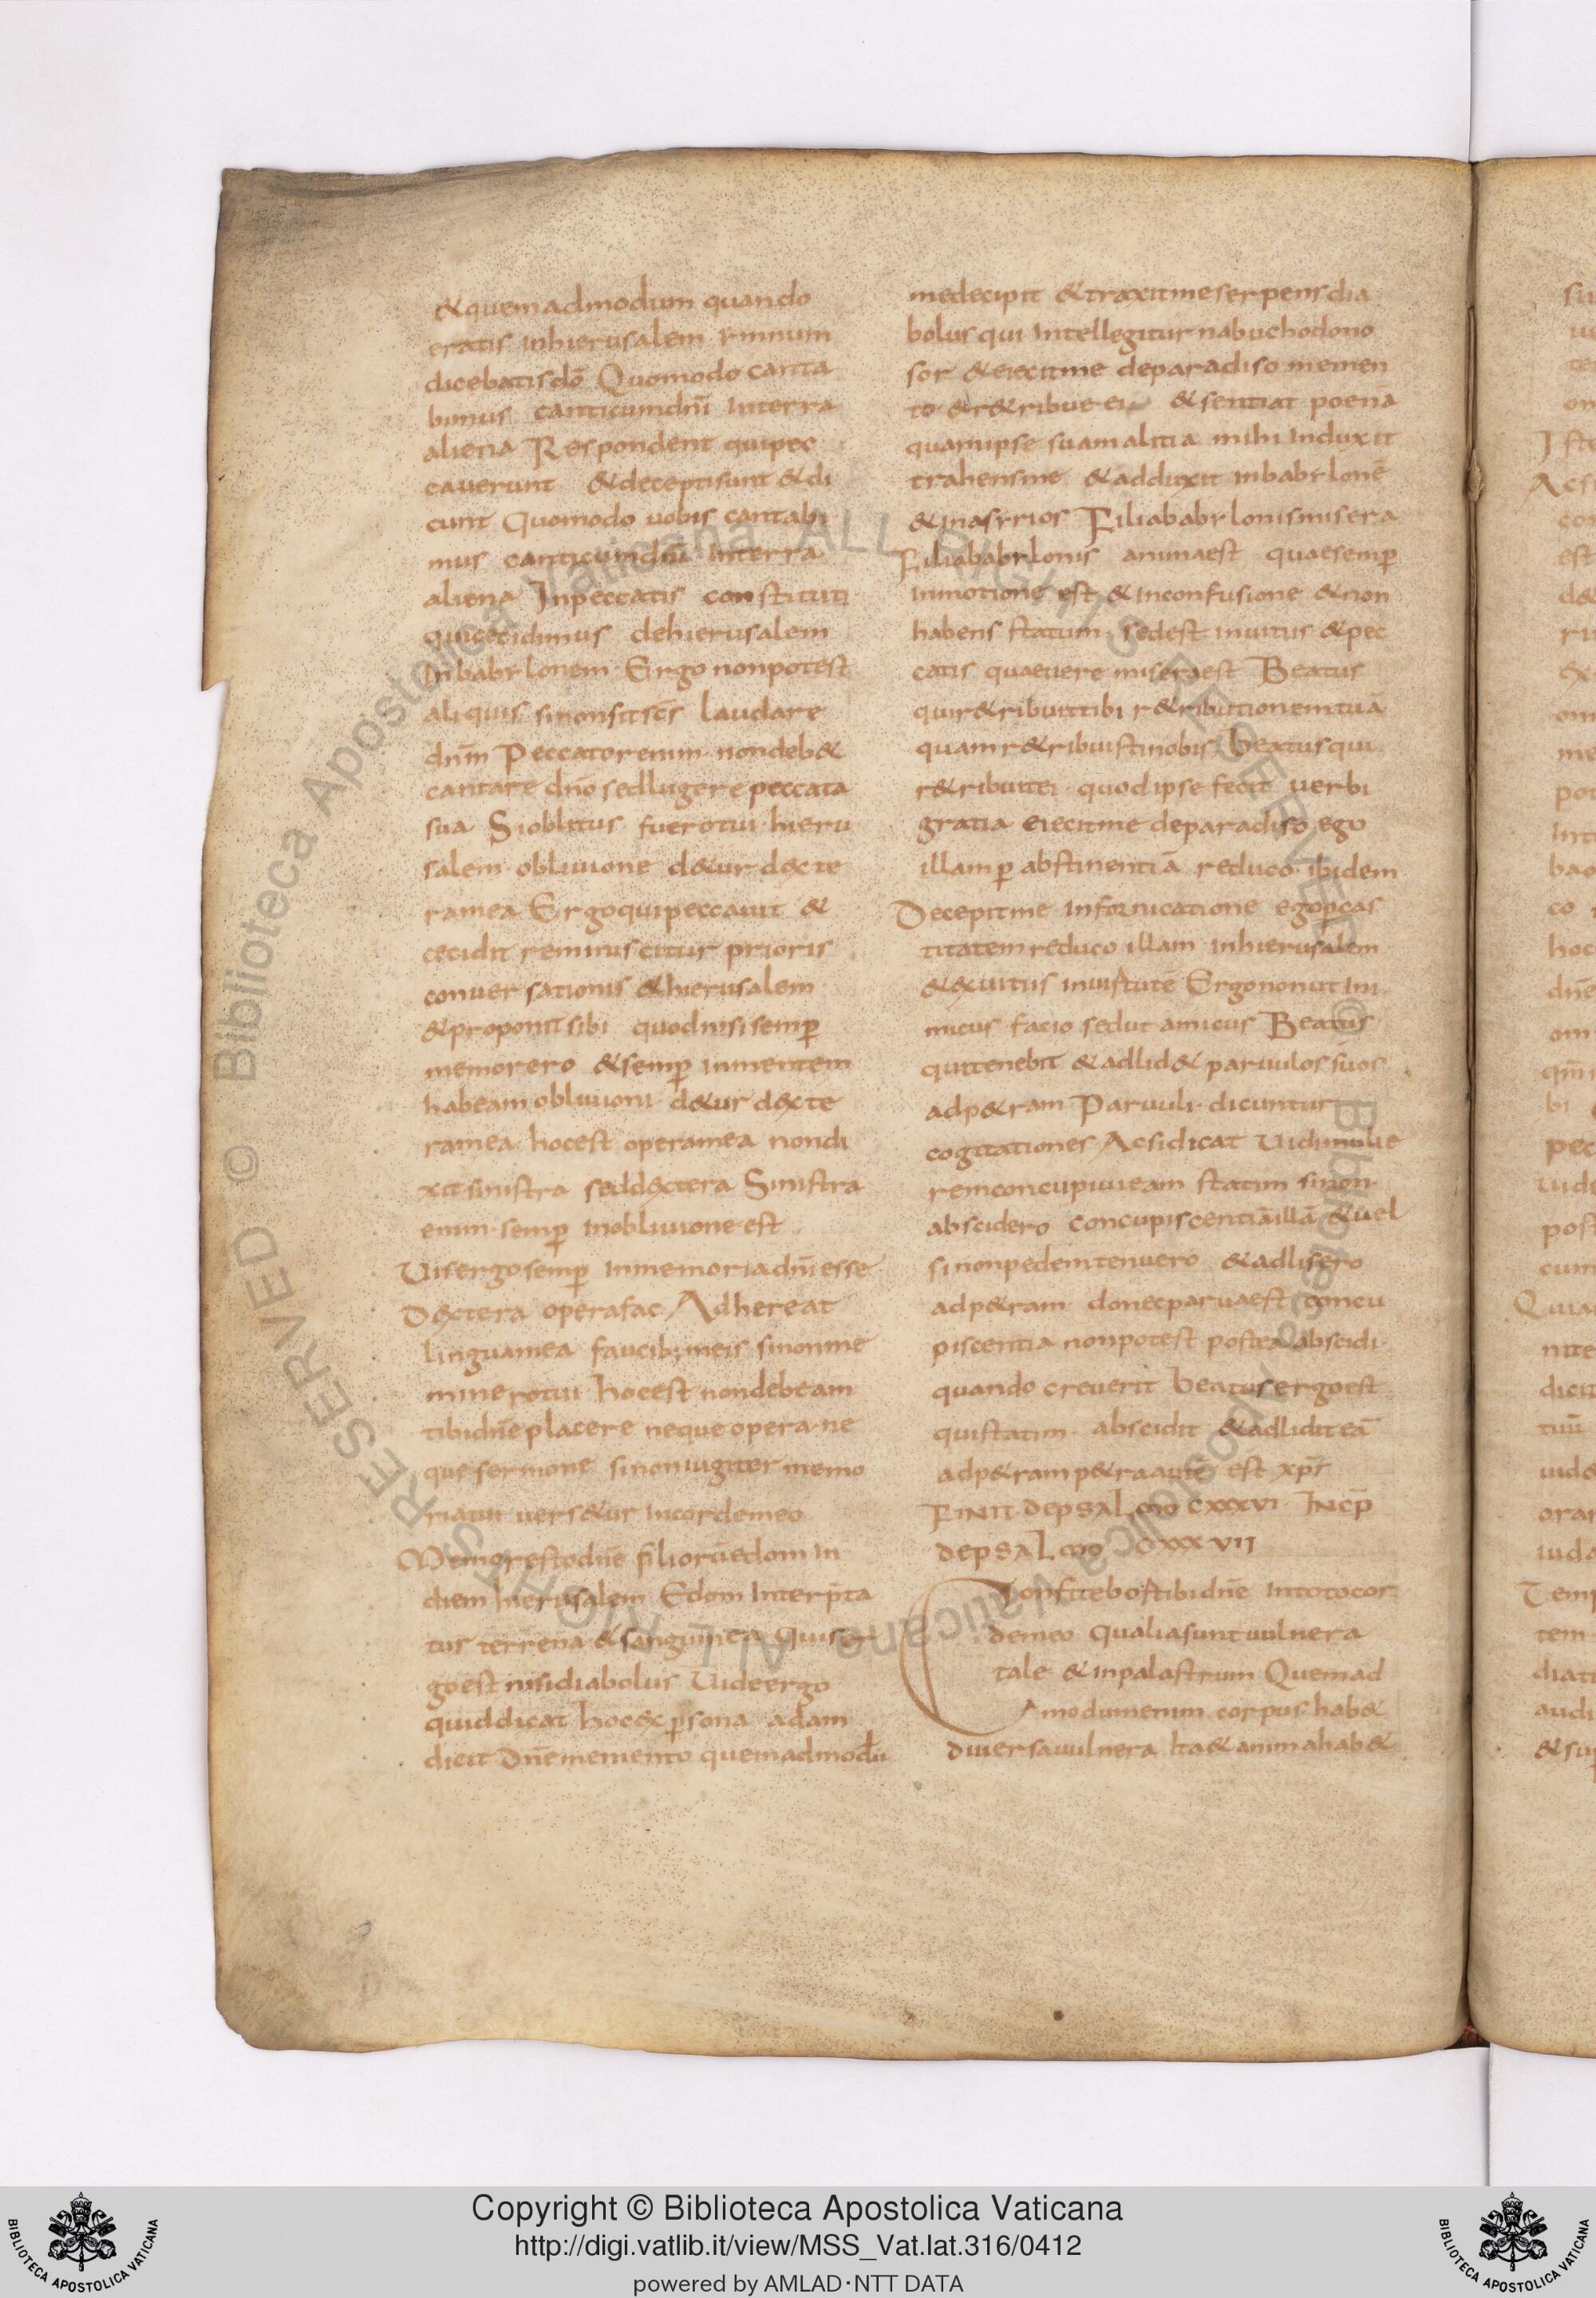 &quemadmodum quando
eratis inhierusalem ymnum
dicebatisdō Quomodo canta
bimus canticumdnī Interra
aliena Respondent quipec
caverunt &deceptisunt &di
cunt Quomodo vobis cantabi
mus canticumdnī Interra
aliena Inpeccatis constituti
quicecidimus dehierusalem
Inbabylonem Ergo nonpotest
aliquis sinonsitscs̄ laudare
dnm̄ Peccatorenim nondeb&
cantare dnō sedlugere peccata
sua Sioblitus fuerotui hieru
salem oblivione d&ur dexte
ramea Ergoquipeccavit &
cecidit reminiscitur prioris
conversationis &hierusalem
&proponit sibi quodnisisemp̄
memorero &semp̄ inmentem
habeam oblivioni d&ur dexte
ramea hocest operamea nondi
xitsinistra seddextera Sinistra
enim semp̄ inoblivione est
Uisergosemp̄ inmemoriadnīesse
Dextera operafac Adhereat
linguamea faucib;meis sinonme
minerotui hocest nondebeam
tibidnēplacere neque opera ne
que sermone sinoniugiter memo
riatui vers&ur incordemeo
Memorestodnē filiorūedom in
diem hierusalem Edom Interp̄ta
tur terrena &sanguinea Quiser
goest nisidiabolus Uideergo
quiddicat hocexp̄sona adam
dicit Dnēmemento quemadmodū
medecipit &traxitmeserpensdia
bolusqui Intellegitur nabuchodono
sor &eiecitme deparadiso memen
to &r&ribue ei &sentiat poenā
quamipse suamalitia mihi Induxit
trahensme &adduxit inbabylonē
&inasyrios Filiababylonismisera
Filiababylonis animaest quaesemp̄
inmotione est &inconfusione &non
habens statum sedest invitiis &pec
catis quaevere miseraest Beatus
quir&ribuittibi r&ributionemtuā
quamr&ribuistinobis beatusqui
r&ribuitei quodipse fecit verbi
gratia eiecitme deparadiso ego
illamp̄ abstinentiā reduco ibidem
Decepitme infornicatione egop̄cas
titatemreduco illam inhierusalem
&exvitiis invirtutē Ergononut ini
micus facio sedut amicus Beatus
quitenebit &adlid& parvulossuos
adp&ram Parvuli dicuntur
cogitationes Acsidicat Uidimulie
remconcupivieam statim sinon
abscidero concupiscentiāillā &vel
sinonpedemtenuero &adlisero
adp&ram donecparvaest concu
piscentia nonpotest posteaabscidi
quando creverit beatusergoest
quistatim abscidit &adlidit eā
adp&ram p&raautē est xps̄
FINIT DEPSALMO CXXXVI INCP̄
DEPSALMO CXXXVII
Confitebortibidnē Intotocor
demeo Qualiasuntvulnera
tale &inpalastrum Quemad
modumenim corpus hab&
diversavulnera Ita&animahab&
Copyright © Biblioteca Apostolica Vaticana
http://digi.vatlib.it/view/MSS_Vat.lat.316/0412
powered by AMLAD·NTT DATA